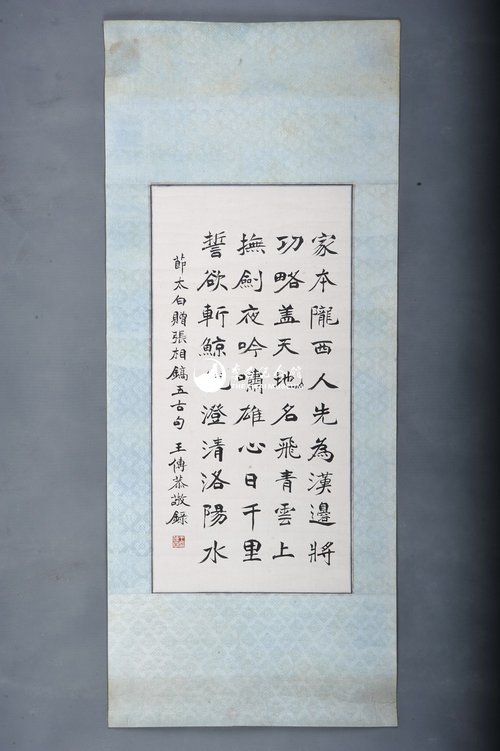 家本隴西人先為漢邊將
功略盖天地名飛青雲上
撫劍夜吟嘯雄心日千里
誓欲斬鯨鯢澄清洛陽水
節太白贈張相鎬五古句 王傳恭敬録